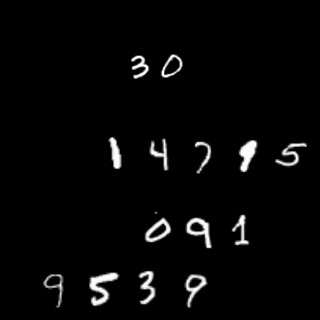 30
14795
091
9539